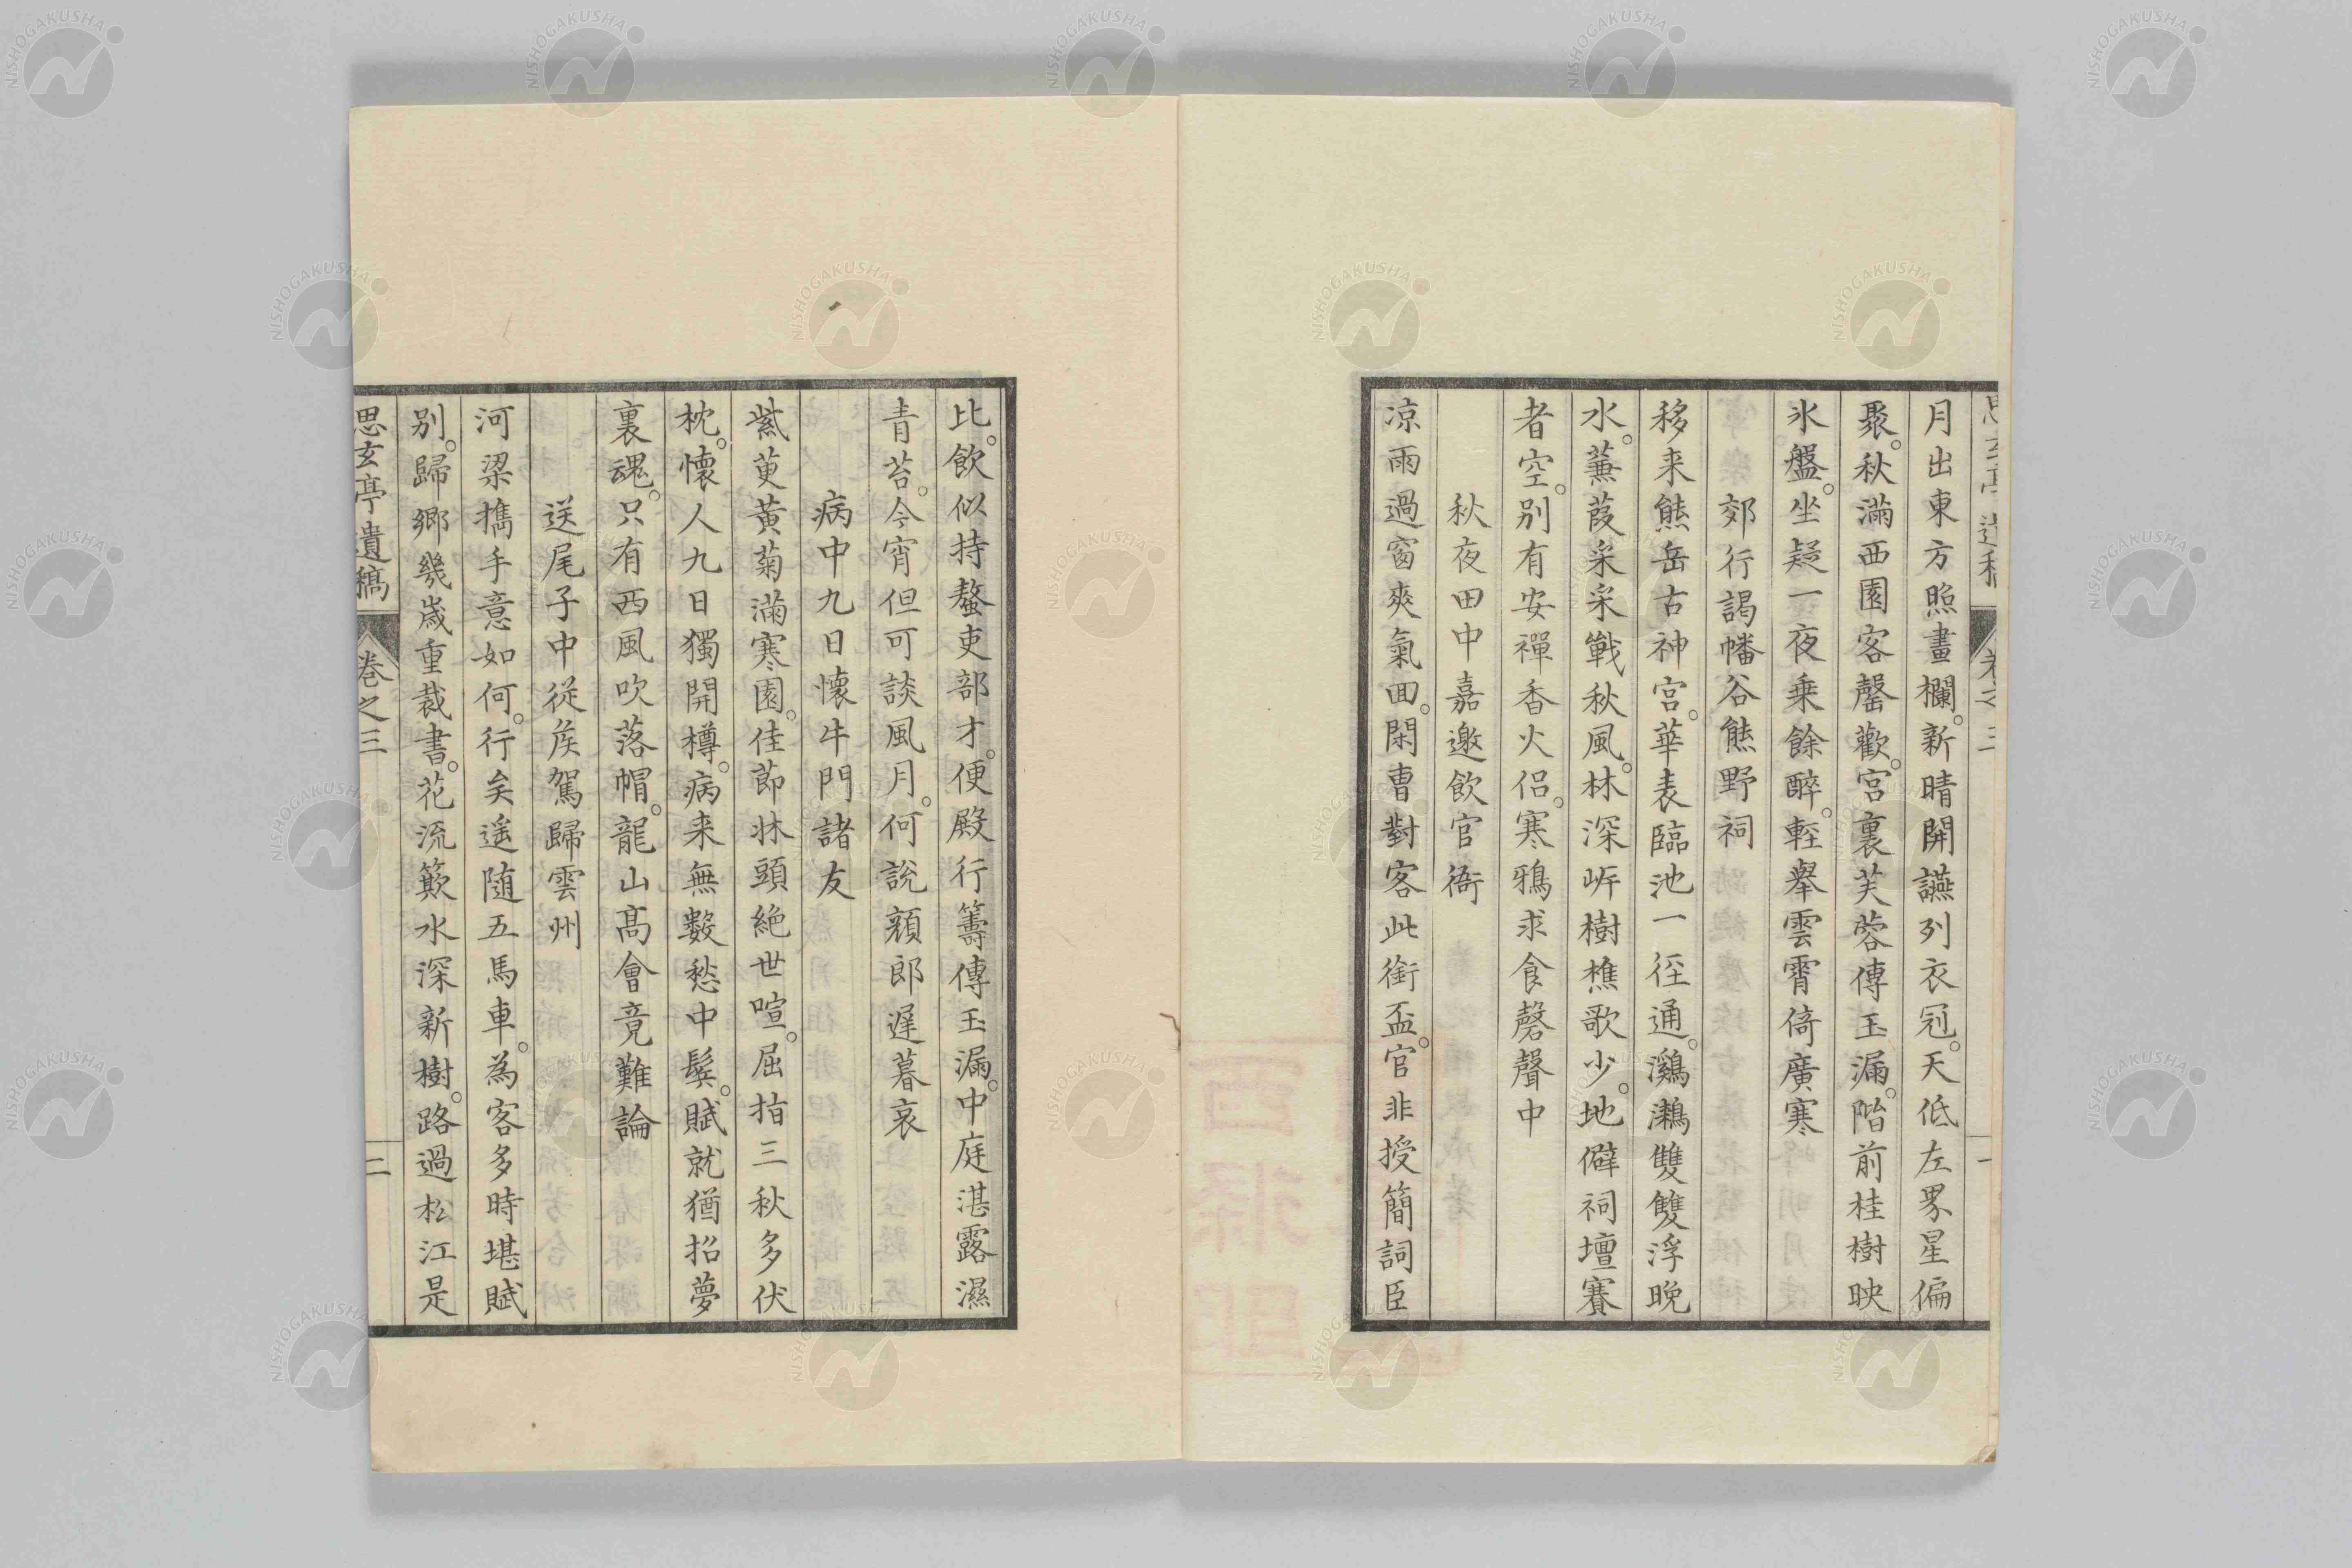 思玄亭遺稿 卷之三 一
月出東方照畫欄。新晴開讌列衣冠。天低左界星偏
聚。秋滿西園客罄歡。宮裏芙蓉傳玉漏。階前桂樹映
氷盤。坐疑一夜乗餘醉。輕舉雲霄倚廣寒
郊行謁幡谷熊野祠
移来熊岳古神宮。華表臨池一徑通。鸂鷘雙雙浮晚
水。蒹葭采采戰秋風。林深岍樹樵歌少。地僻祠壇賽
者空。別有安禪香火侶。寒鴉求食磬聲中
秋夜田中嘉邀飲官衙
凉雨過窗爽氣回。閑曹對客此銜盃。官非授簡詞臣
比。飲似持螯吏部才。便殿行籌傳玉漏。中庭湛露濕
青苔。今宵但可談風月。何說顔郎遲暮哀
病中九日懷牛門諸友
紫萸黃菊滿寒園。佳莭牀頭絶世喧。屈指三秋多伏
枕。懷人九日獨開樽。病来無數愁中鬂。賦就猶招夢
裏魂。只有西風吹落帽。龍山高會竟難論
送尾子中從矦駕歸雲州
河梁擕手意如何。行矣遥随五馬車。為客多時堪賦
別。歸鄉幾歲重裁書。花流簸水深新樹。路過松江是
思玄亭遺稿 卷之三 二
NISHOGAKUSHA